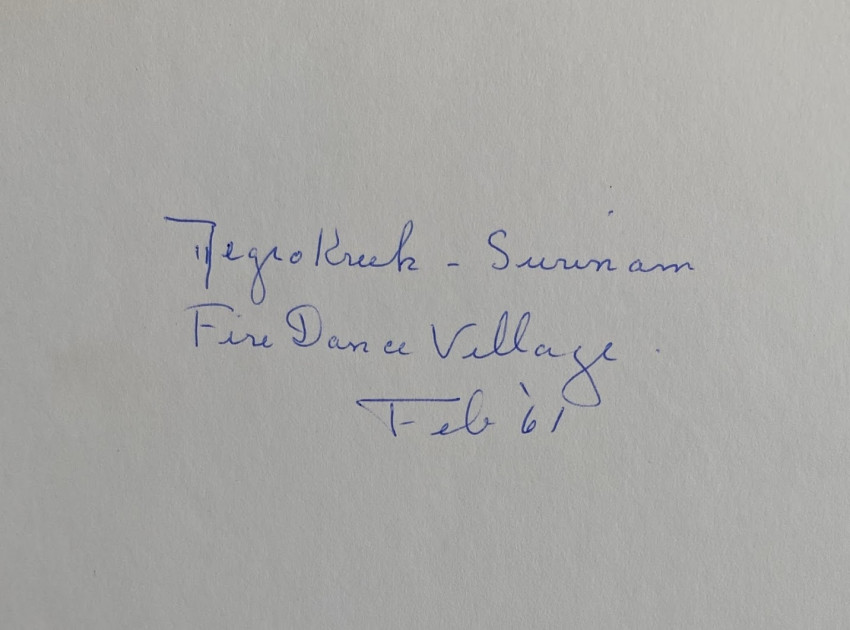 NegroKreek - Surinam
Fire Dance Village.
Feb '61